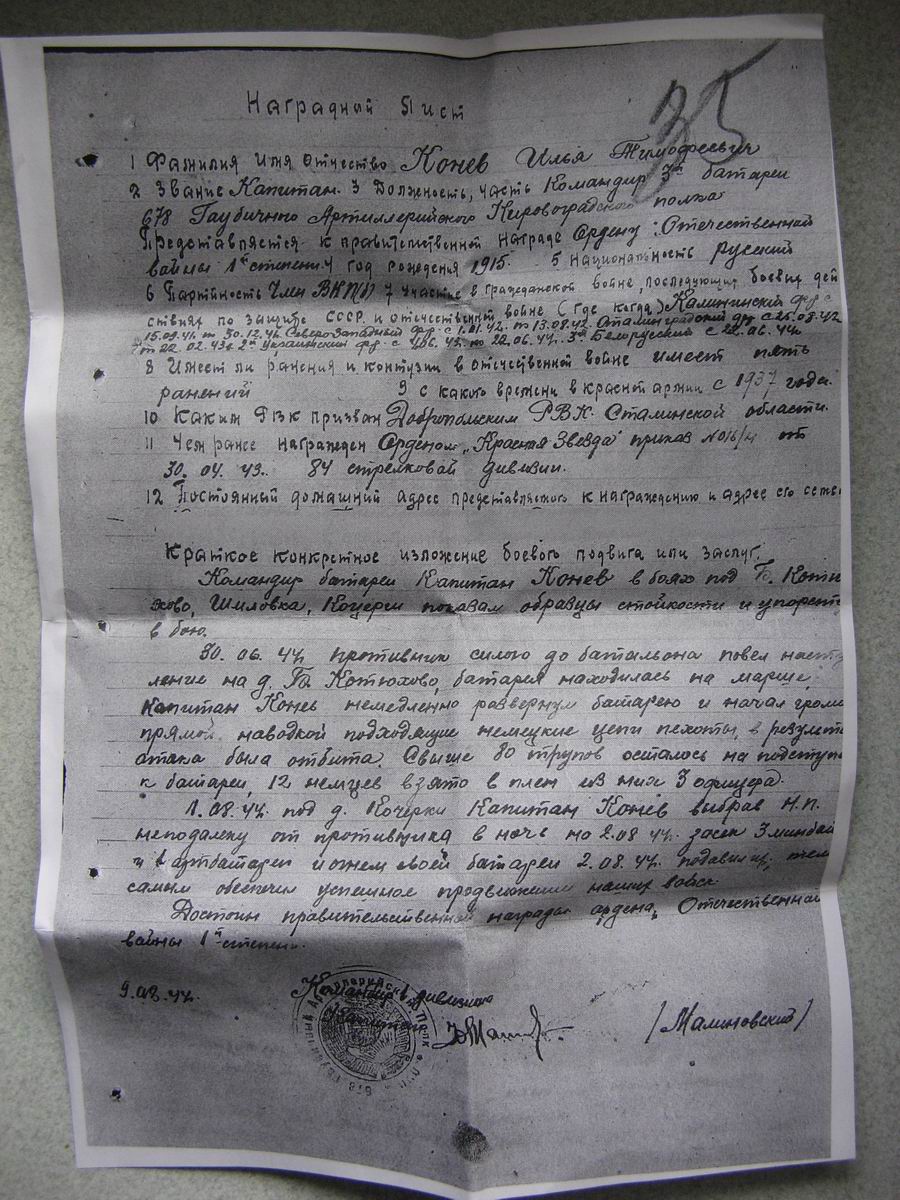 35
Наградный Лист
1 Фамилия Имя Отчество Конев Илья Тимофеевич
2 Звание Капитан. 3 Должность, часть Командир 3й батареи
678 Гаубичного Артиллерийского Кировоградского полка
Представляется к правительственной награде Ордену: Отечественной
войны 1й степени. 4 год рождения 1915. 5 Национальность русский
6 Партийность Член ВКП(б) 7 Участие в гражданской войне, последующих боевых дей
ствиях по защите СССР и отечественной войне (где когда) Калининский фр. с
15.09.41. по 30.12.41. Северо-Западный фр. с 1.01.42. по 13.08.42. Сталинградский фр с 25.08.42
по 22.02.43г. 2й Украинский фр. с по 22.06.44. 3й Белорусский с 22.06.44.
8 Имеет ли ранения и контузии в отечественной войне имеет пять
ранений 9 с какого времени в красной армии с 1937 года.
10 Каким РВК призван Добропольским РВК. Сталинской области.
11 Чем ранее награжден Орденом „Красная Звезда" приказ №016/н от
30.04.43. 84 стрелковой дивизии.
12 Постоянный домашний адрес представляемого к награждению и адрес его семьи
Краткое конкретное изложение боевого подвига или заслуг.
Командир батареи Капитан Конев в боях под Котю
хово, Шиловка, показал образцы стойкости и упорств
в бою.
30.06.44 противник силою до батальона повел насту
пление на д. Котюхово, батарея находилась на марше,
Капитан Конев немедленно развернул батарею и начал громи
прямой наводкой подходящие немецкие цепи пехоты, в результ
атака была отбита. Свыше 80 трупов осталось на подступа
к батареи, 12 немцев взято в плен из них 3 офицера.
1.08.44. под д. Кочерки Капитан Конев выбрав Н.П.
неподалеку от противника в ночь на 2.08.44. засек 3 минбат
и 1 артбатареи и огнем своей батареи 2.08.44. подавил их, тем
самым обеспечил успешное продвижение наших войск.
Достоин правительственной награды ордена „Отечественной
войны 1й степени.
9.08.44. Командир дивизиона
Капитан (Малиновский)